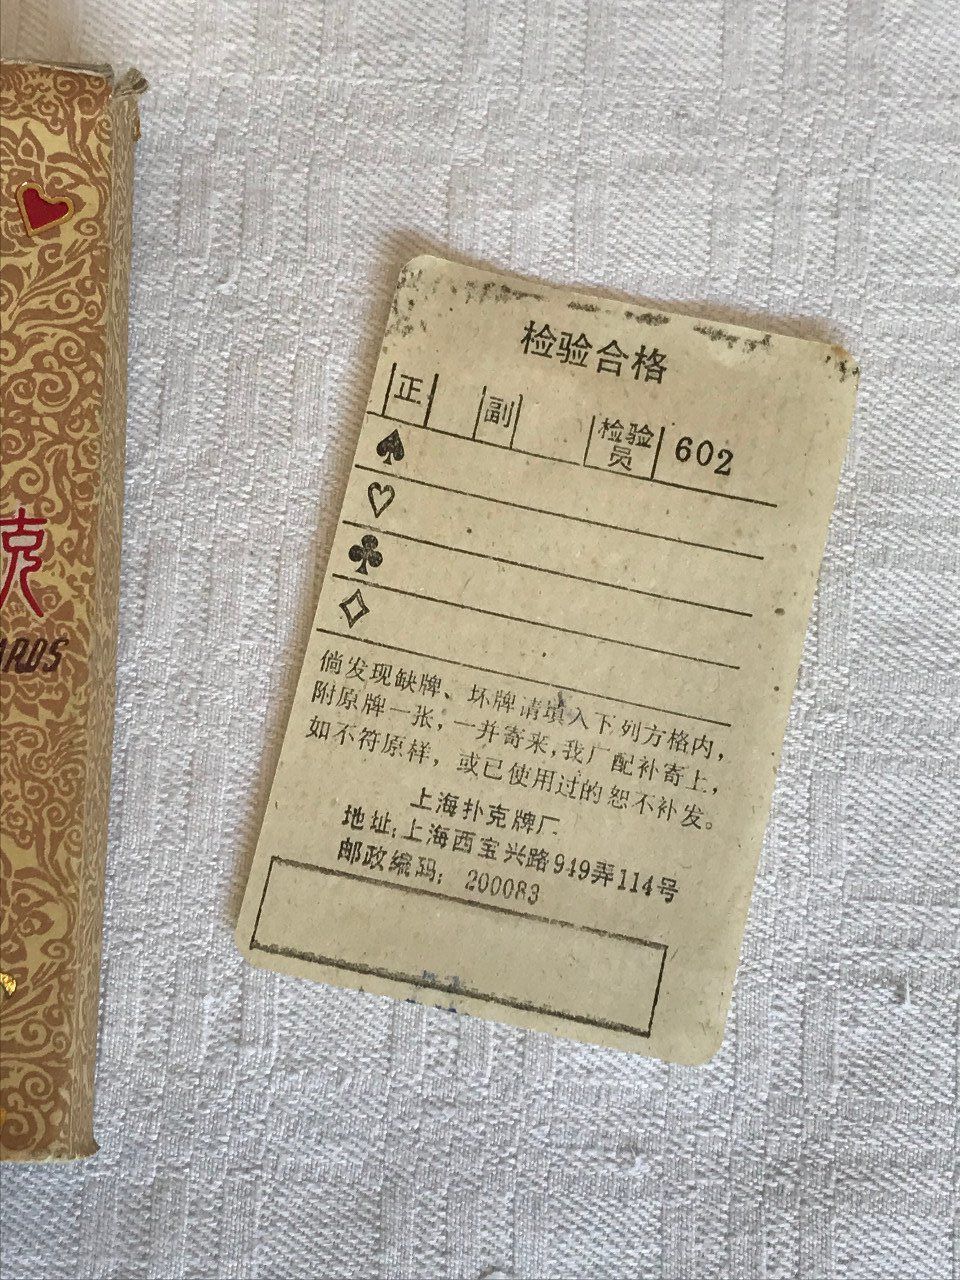 检验合格
正 副 检验员 602
倘发现缺牌、坏牌请填入下列方格内，
附原牌一张，一并寄来，我厂配补寄上，
如不符原样，或已使用过的恕不补发。
上海扑克牌厂
地址：上海西宝兴路949弄114号
邮政编码：200083
克
ARDS